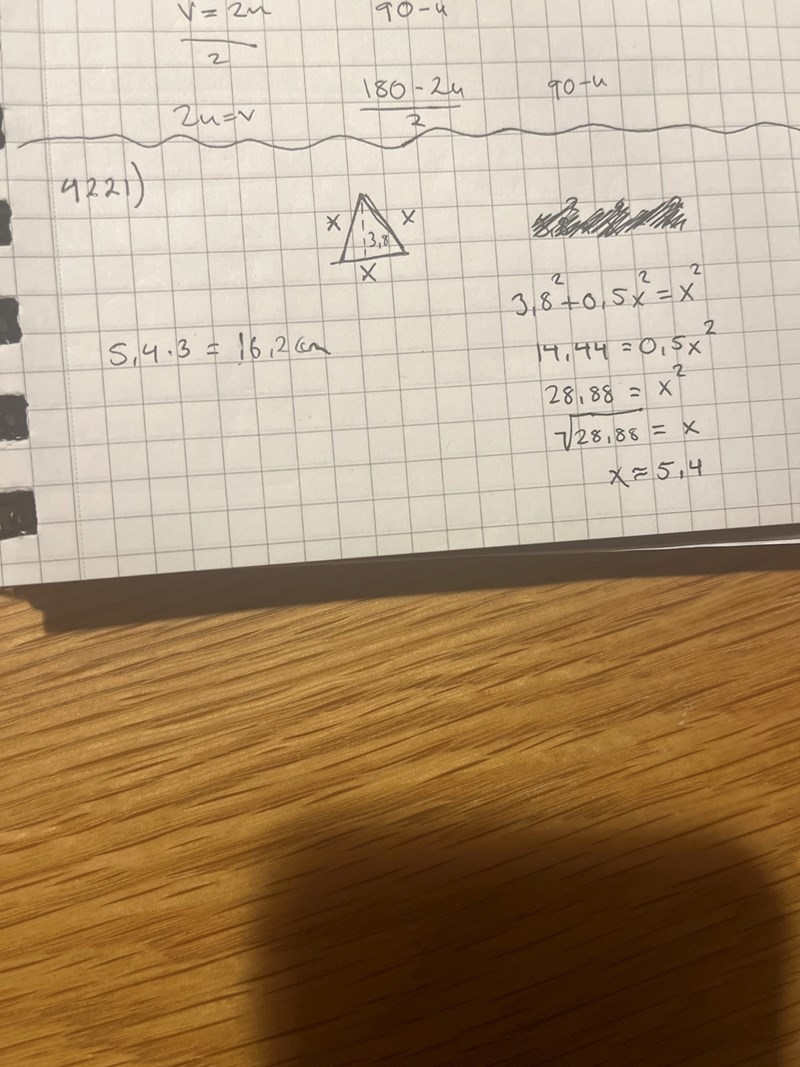 v = 2u 90-u
2
2u=v 180-2u 90-u
2
4221)
x x
3,8
x
3,8²+0,5x²=x²
5,4·3 = 16,2cm 14,44 = 0,5x²
28,88 = x²
√28,88 = x
x≈5,4